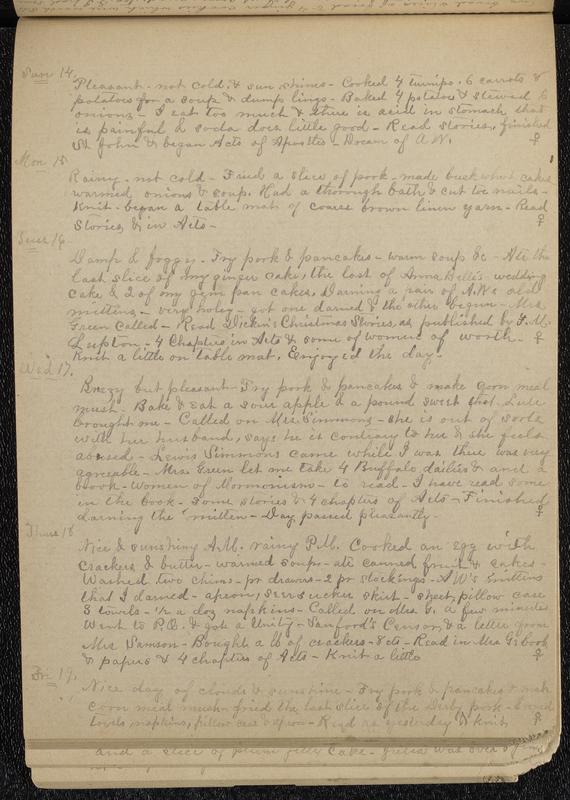 Sun 14.
Pleasant - not cold, & sun shines - Cooked 4 turnips - 6 carrots &
potatoes for a soup & dumplings - Baked 4 potatoes & stewed 6
onions - I eat too much & there is acid in stomach that
is painful & soda does little good - Read stories, finished
St John & began Acts of Apostles - Dream of A.W. ♀
Mon 15.
Rainy - not cold - Fried a slice of pork - made buckwheat cakes
warmed onions & soup. Had a thorough bath & cut toe nails -
Knit - began a table mat of coarse brown linen yarn - Read
Stories & in Acts - ♀
Tues 16.
Damp & foggy - Fry pork & pancakes - warm soup &c - Ate the
last slice of my ginger cake, the last of Anna Belle's wedding
cake & 2 of my gem pan cakes, Darning a pair of A.W's old
mittens - very holey - got one darned & the other begun - Mrs.
Green called - Read Dickin's Christmas Stories, as published by F. M.
Lupton - 4 Chapters in Acts & some of women of worth - ♀
Knit a little on table mat. Enjoyed the day -
Wed 17.
Breezy but pleasant - Fry pork & pancakes & make corn meal
mush - Bake & eat a sour apple & a pound sweet that Lule
brought me - Called on Mrs Simmons - she is out of sorts
with her husband, says he is contrary to her & she feels
abused - Lewis Simmons came while I was there was very
agreeable - Mrs Green let me take 4 Buffalo dailies & and a
book - Women of Mormonism - to read - I have read some
in the book - some stories & 4 chapters of Acts - Finished
darning the mitten - Day passed pleasantly - ♀
Thurs 18
Nice & sunshiny A.M. rainy P.M. Cooked an egg with
crackers & butter - warmed soup - ate canned fruit & cakes -
Washed two chims - pr drawrs - 2 pr stockings - A.W's mittens
that I darned - apron, seersucker skirt - sheet, pillow case
3 towels - 1/2 a doz napkins - Called on Mrs G. a few minutes
Went to P.O. & got a Unity - Sanford's Censor, & a letter from
Mrs Samson - Bought a lb of crackers - 8cts - Read in Mrs G's book
& papers & 4 chapters of Acts - Knit a little ♀
Fri 19,
Nice day of clouds & sunshine - Fry pork & pancakes & make
corn meal mush - fried the last slice of the Dirty pork -
towels, napkins, pillow case & apron - Read as yesterday & knit ♀
and a slice of plum jelly cake - Julia was over